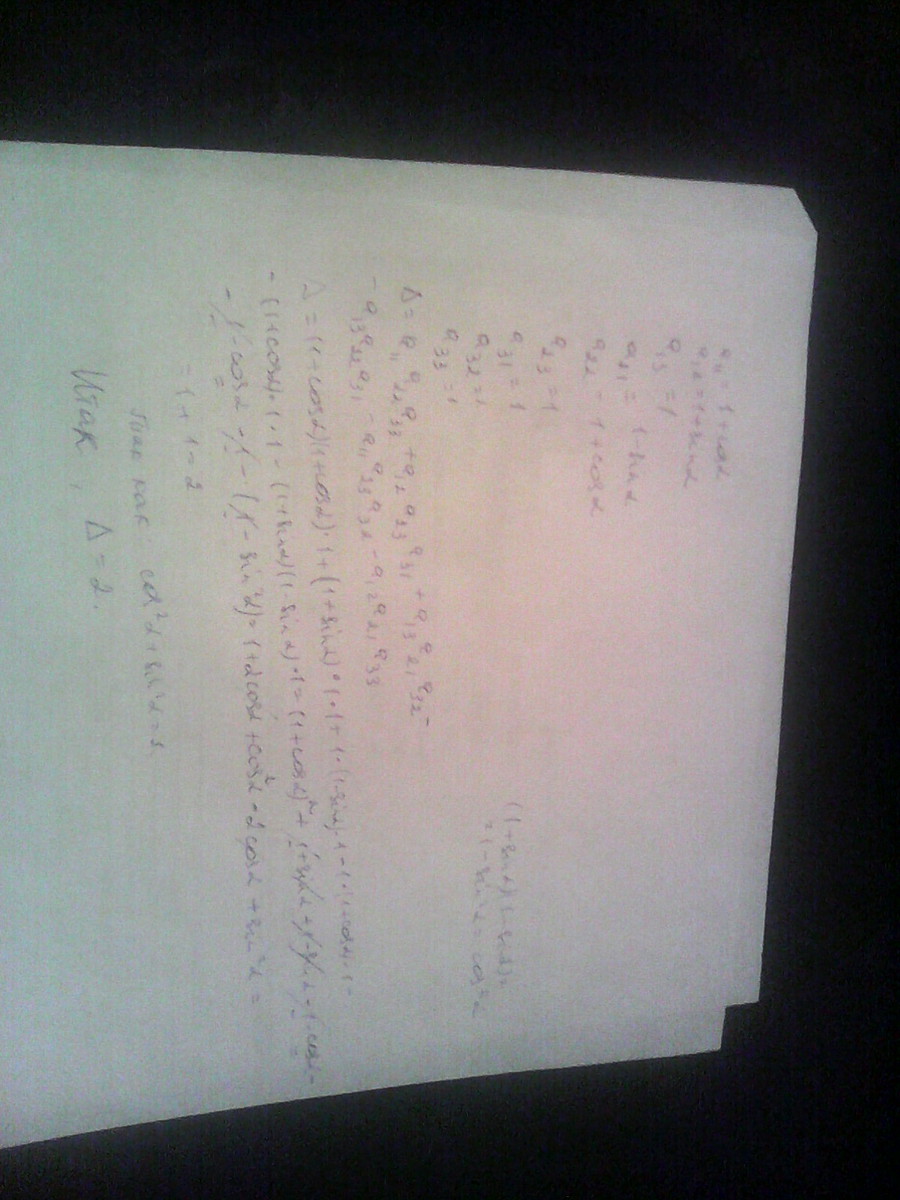 a₁₁ = 1 + cosα
a₁₂ = 1 + sinα
a₁₃ = 1
a₂₁ = 1 - sinα
a₂₂ = 1 + cosα
a₂₃ = 1
a₃₁ = 1
a₃₂ = 1
a₃₃ = 1
(1 + sinα)(1 - sinα) =
= 1 - sin²α = cos²α
Δ = a₁₁a₂₂a₃₃ + a₁₂a₂₃a₃₁ + a₁₃a₂₁a₃₂ -
- a₁₃a₂₂a₃₁ - a₁₁a₂₃a₃₂ - a₁₂a₂₁a₃₃
Δ = (1 + cosα)(1 + cosα)·1 + (1 + sinα)·1·1 + 1·(1 - sinα)·1 - 1·(1 + cosα)·1 -
- (1 + cosα)·1·1 - (1 + sinα)(1 - sinα)·1 = (1 + cosα)² + 1 + sinα + 1 - sinα - 1 - cosα -
- 1 - cosα - (1 - sin²α) = 1 + 2cosα + cos²α - 2cosα + sin²α =
= 1 + 1 = 2
так как: cos²α + sin²α = 1
Итак, Δ = 2.